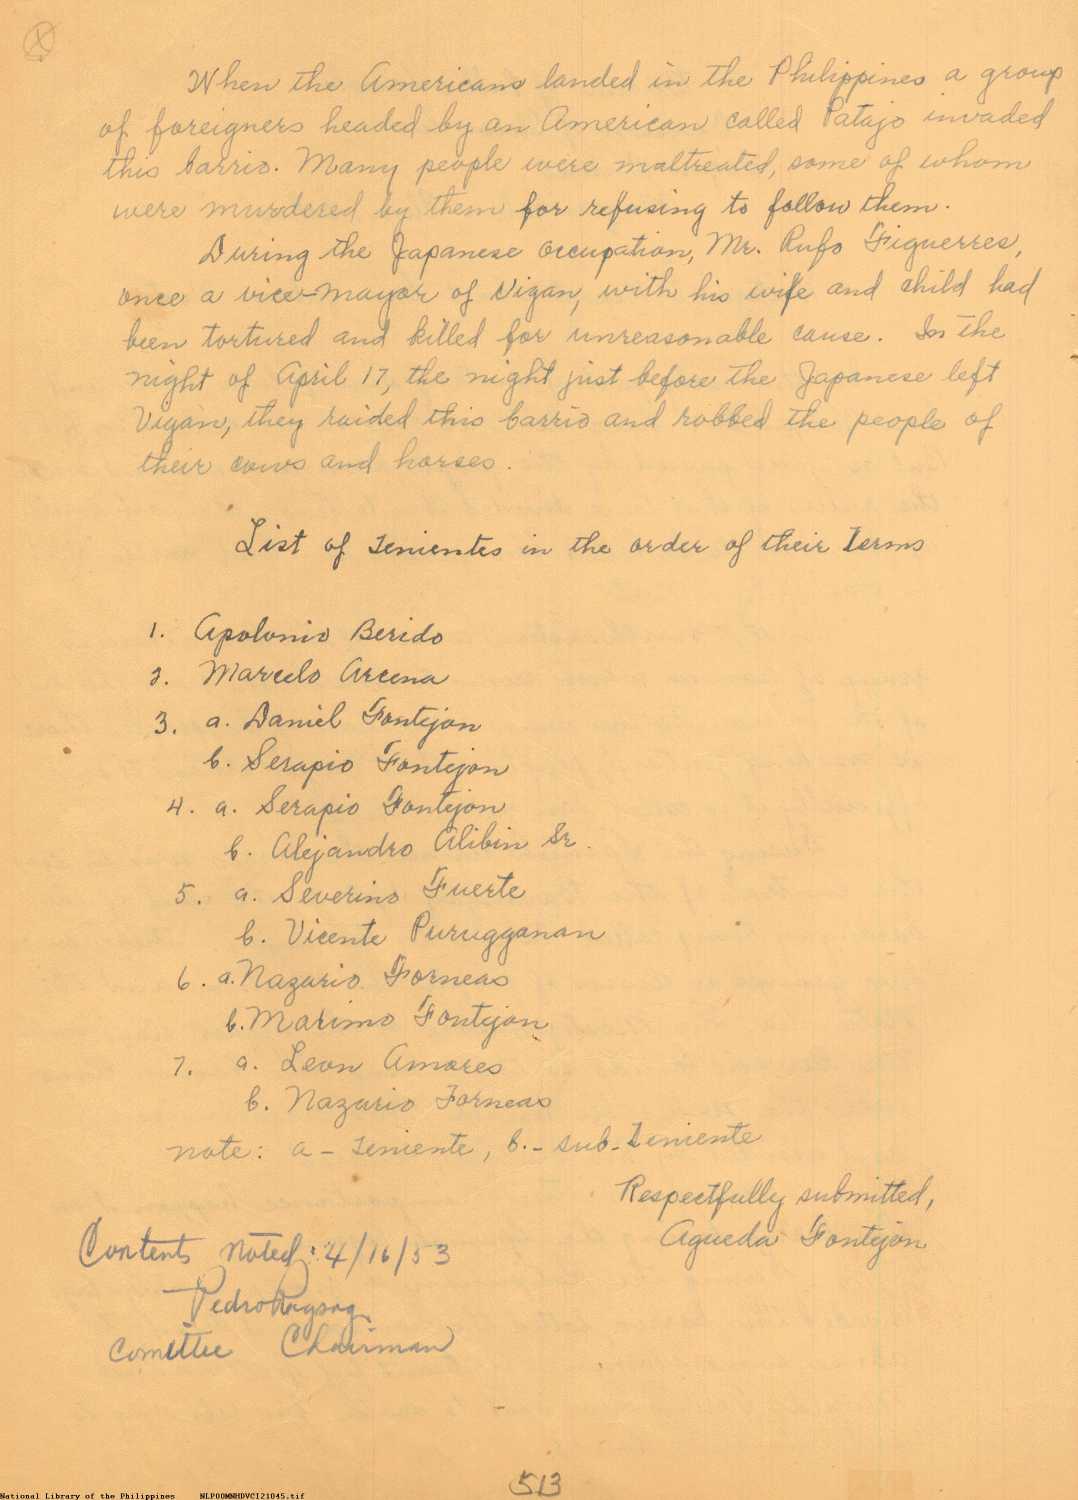 X
When the Americans landed in the Philippines a group
of foreigners headed by an American called Patajo invaded
this barrio. Many people were maltreated, some of whom
were murdered by them for refusing to follow them.
During the Japanese occupation, Mr. Rufo Figuerres,
once a vice-mayor of Vigan, with his wife and child had
been tortured and killed for unreasonable cause. In the
night of April 17, the night just before the Japanese left
Vigan, they raided this barrio and robbed the people of
their cows and horses.
List of Tenientes in the order of their Terms
1. Apolonio Berido
2. Marcelo Arcena
3. a. Daniel Fontejon
b. Serapio Fontejon
4. a. Serapio Fontejon
b. Alejandro Alibin Sr.
5. a. Severino Fuerte
b. Vicente Purugganan
6. a. Nazario Forneas
b. Marimo Fontejon
7. a. Leon Amores
b. Nazario Forneas
note: a - Teniente, b. - sub-Teniente
Respectfully submitted,
Agueda Fontejon
Contents Noted: 4/16/53
Pedro
Comittee Chairman
513
National Library of the Philippines NLPOOMNHDVCI21045.tif